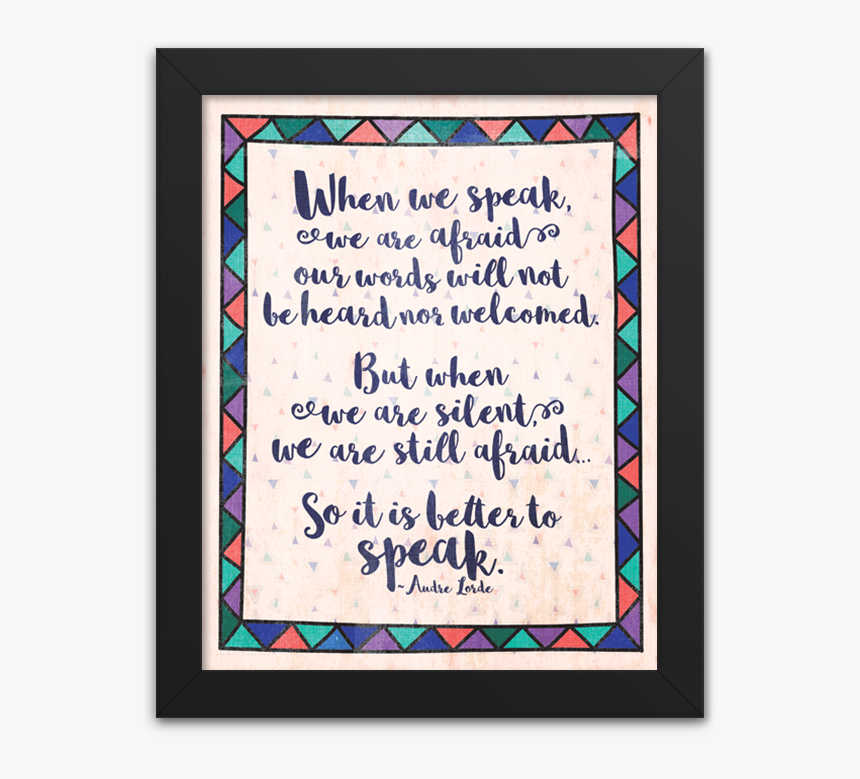 When we speak,
we are afraid
our words will not
be heard nor welcomed.
But when
we are silent,
we are still afraid...
So it is better to
speak.
~Audre Lorde